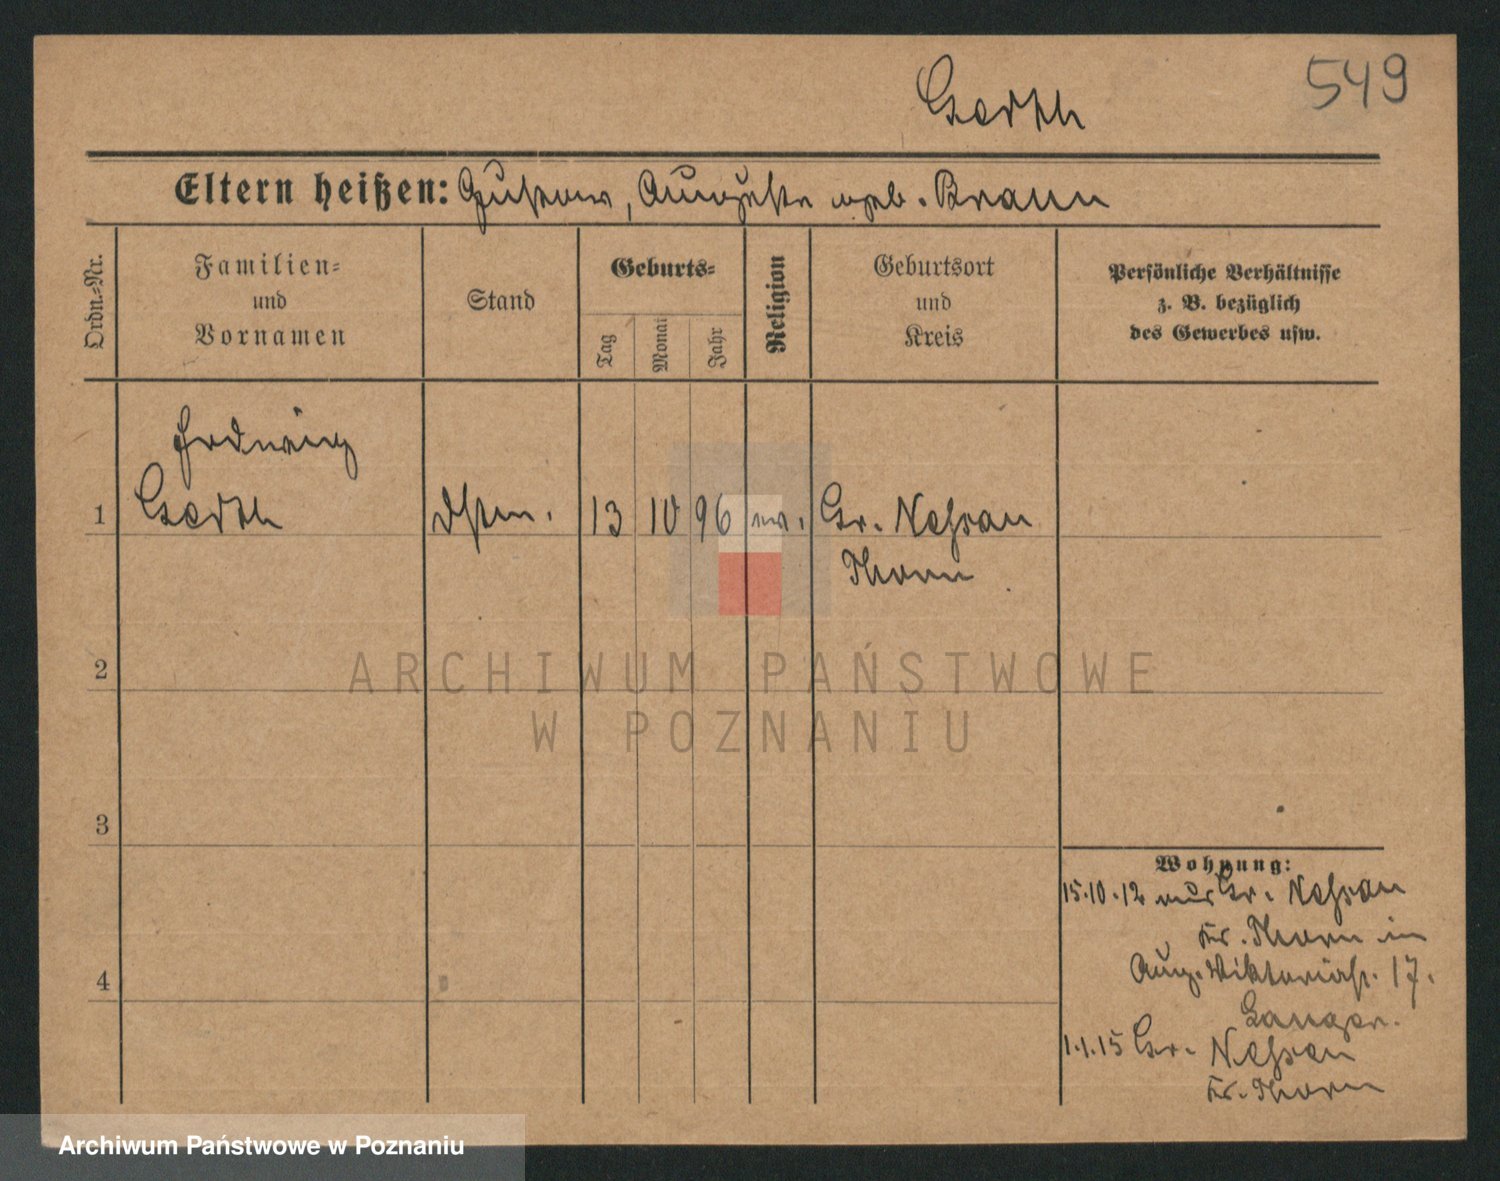 549
Gerth
Eltern heißen: Gustav, Auguste geb. Braun
Ordn.=Nr.
Familien=
und
Vornamen
Stand
Geburts=
Tag
Monat
Jahr
Religion
Geburtsort
und
Kreis
Persönliche Verhältnisse
z. B. bezüglich
des Gewerbes usw.
Hedwig
1 Gerth 13 10 96 ev. Gr. Nessau
Thorn
ARCHIWUM PAŃSTWOWE
W POZNANIU
2
3
4
Wohnung:
15.10.12 aus Gr. Nessau
Kr. Thorn in
Aug. Viktoriast. 17.
Langer.
1.1.15 Gr. Nessau
Kr. Thorn
Archiwum Państwowe w Poznaniu